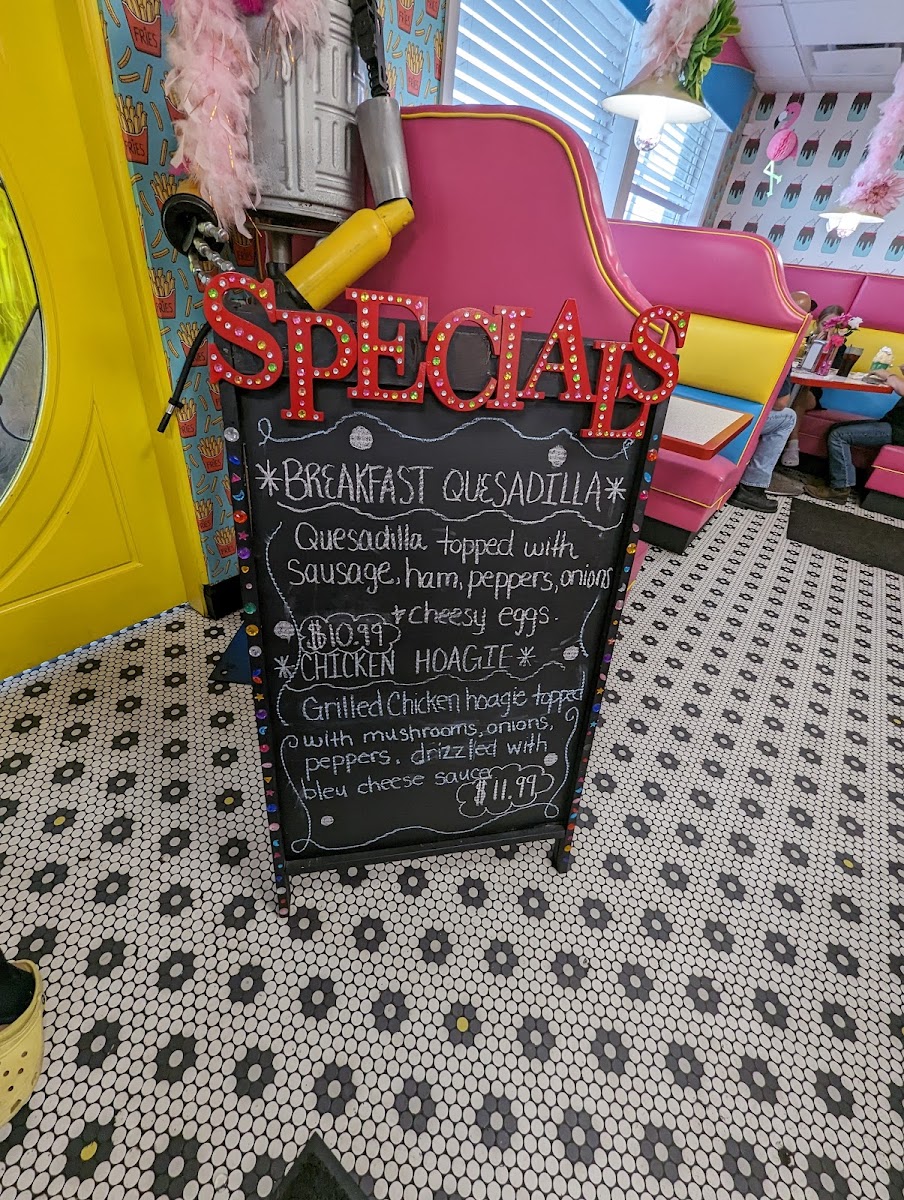 FRIES
FRIES
SPECIALS
*BREAKFAST QUESADILLA*
Quesadilla topped with
sausage, ham, peppers, onions
+ cheesy eggs.
$10.99
*CHICKEN HOAGIE*
Grilled Chicken hoagie topped
with mushrooms, onions,
peppers. drizzled with
bleu cheese sauce
$11.99